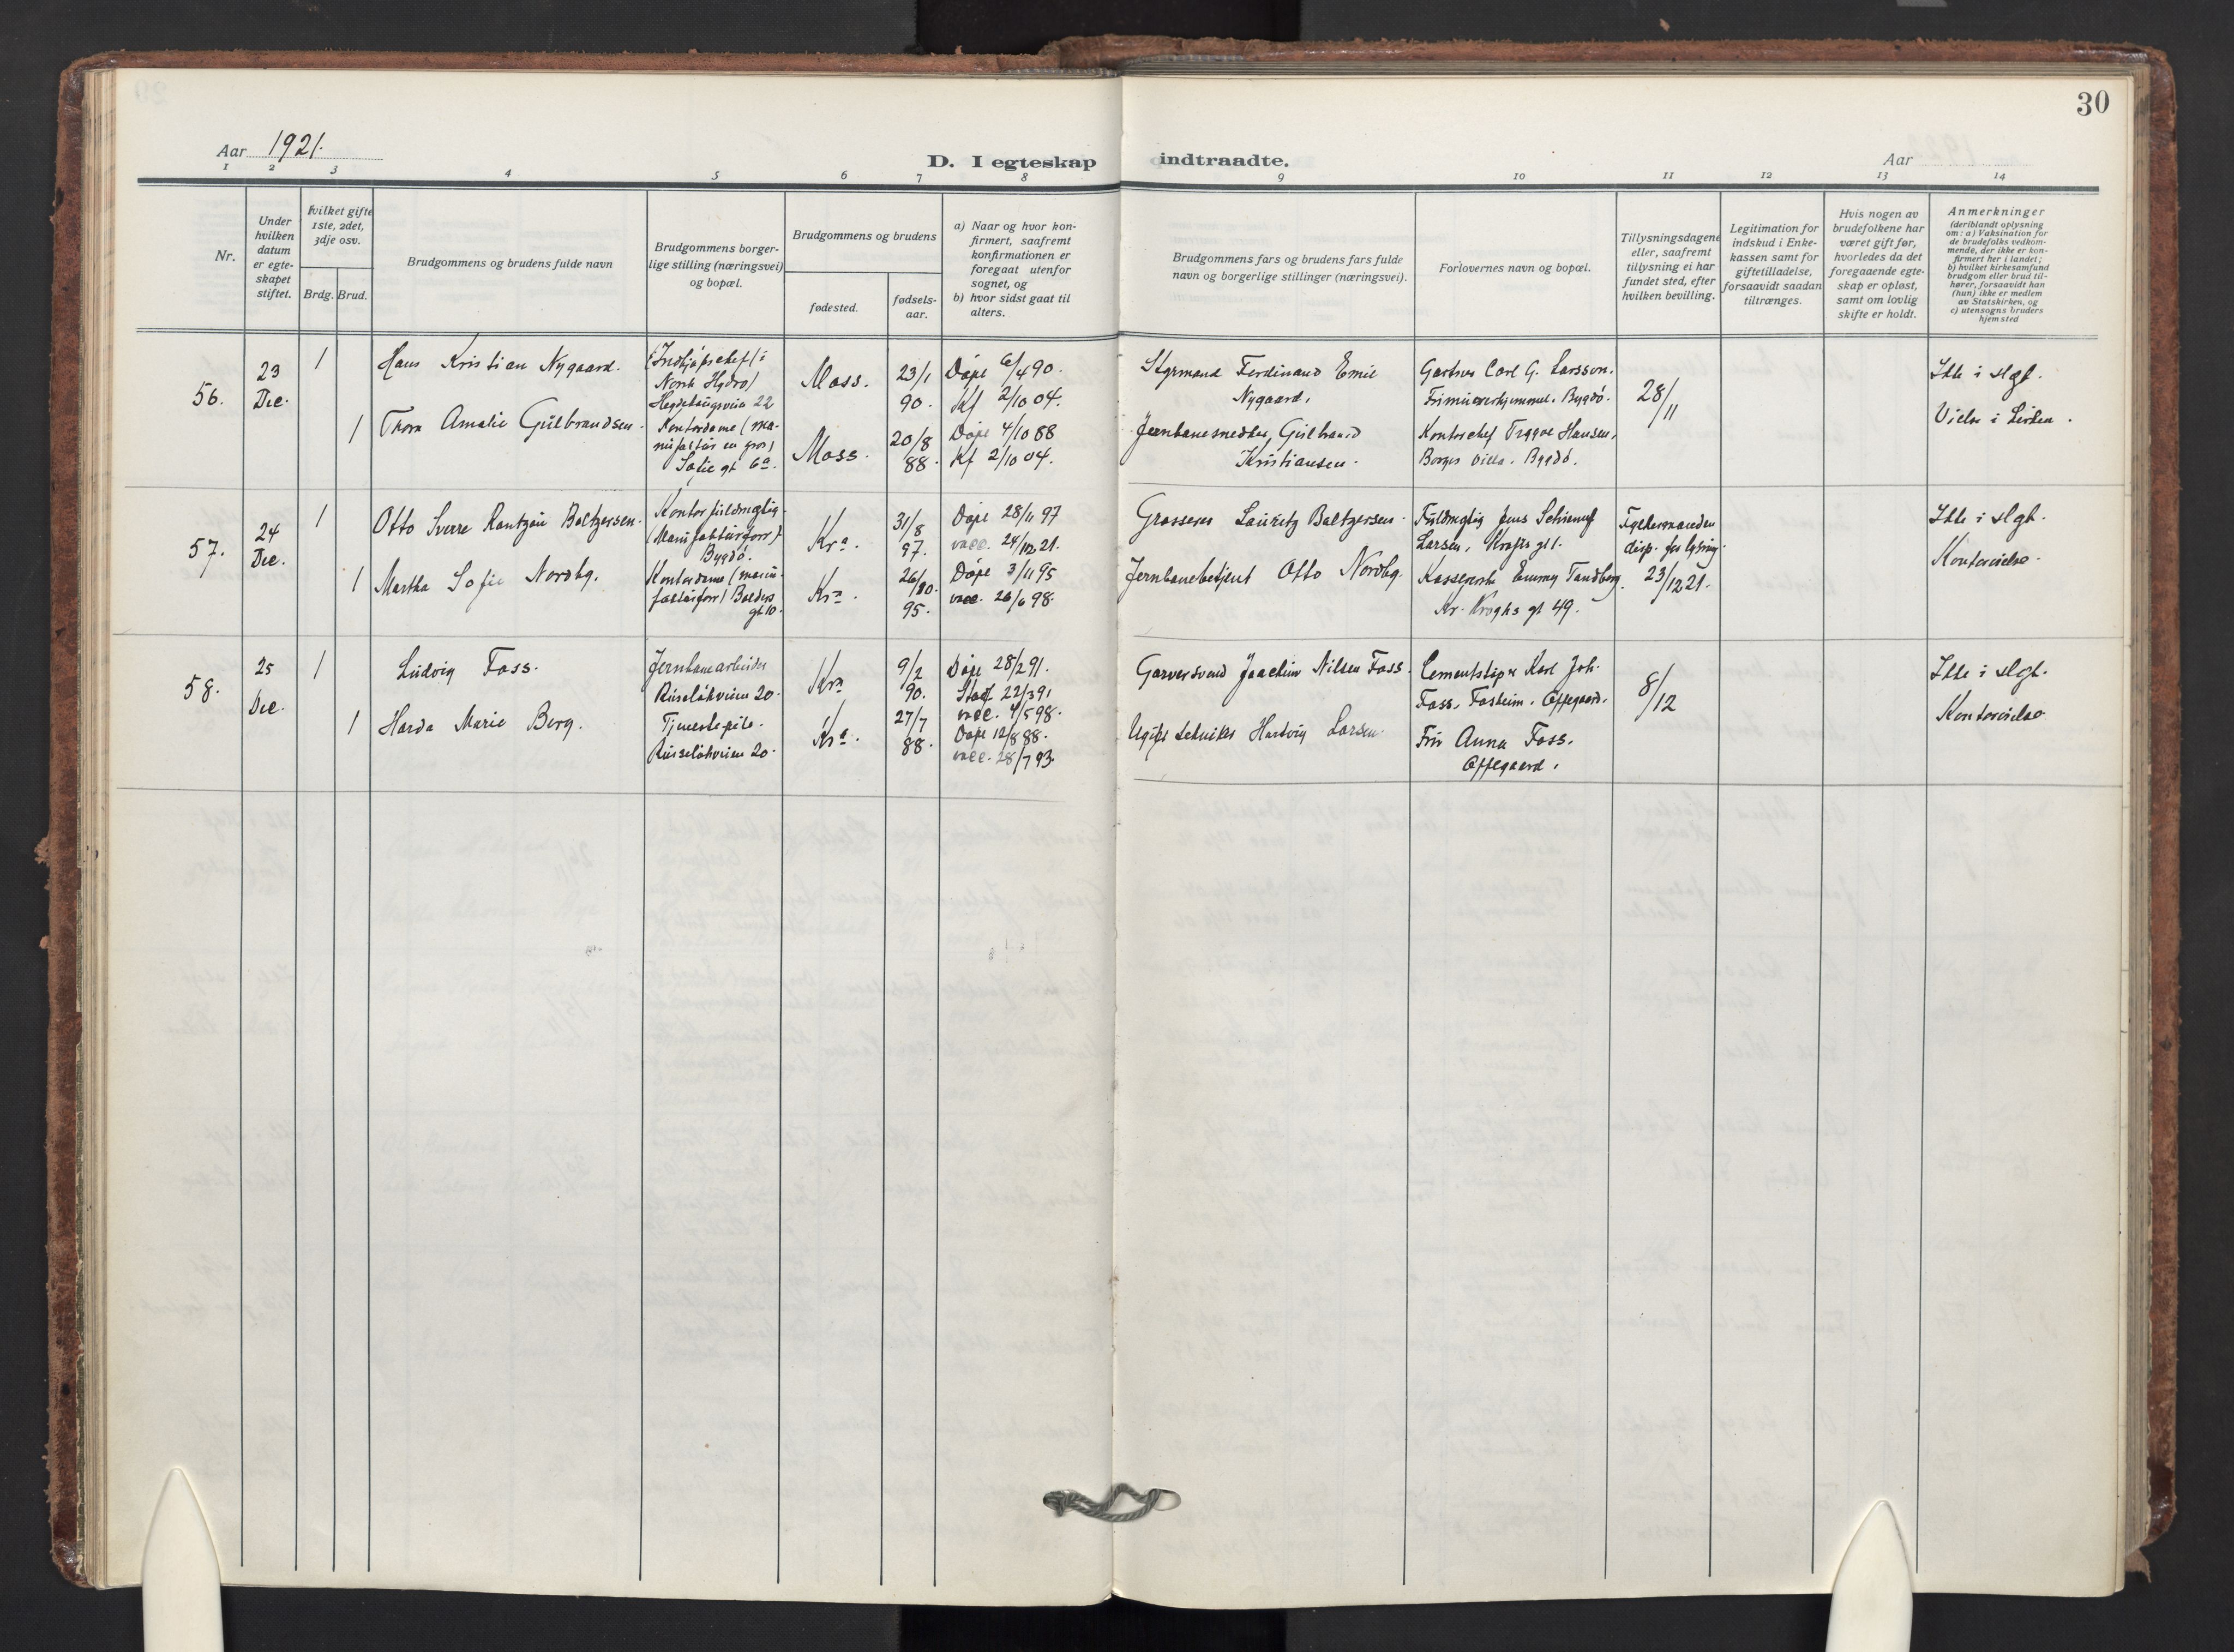 30
Aar 1921.
D. I egteskap indtraadte.
Aar
1 2 3 4 5 6 7 8 9 10 11 12 13 14
Nr.
Under
hvilken
datum
er egte-
skapet
stiftet.
hvilket gifte
1ste, 2det,
3dje osv.
Brdg. Brud.
Brudgommens og brudens fulde navn
Brudgommens borger-
lige stilling (næringsvei)
og bopæl.
Brudgommens og brudens
fødested.
fødsels-
aar.
a) Naar og hvor kon-
firmert, saafremt
konfirmationen er
foregaat utenfor
sognet, og
b) hvor sidst gaat til
alters.
Brudgommens fars og brudens fars fulde
navn og borgerlige stillinger (næringsvei).
Forlovernes navn og bopæl.
Tillysningsdagene
eller, saafremt
tillysning ei har
fundet sted, efter
hvilken bevilling.
Legitimation for
indskud i Enke-
kassen samt for
giftetilladelse,
forsaavidt saadan
tiltrænges.
Hvis nogen av
brudefolkene har
været gift før,
hvorledes da det
foregaaende egte-
skap er opløst,
samt om lovlig
skifte er holdt.
Anmerkninger
(deriblandt oplysning
om: a) Vaksination for
de brudefolks vedkom-
mende, der ikke er kon-
firmert her i landet;
b) hvilket kirkesamfund
brudgom eller brud til-
hører, forsaavidt han
(hun) ikke er medlem
av Statskirken, og
c) utensogns bruders
hjemsted
56.
23
Dec.
1
Hans Kristian Nygaard.
(Indkjøpschef i
Norsk Hydro)
Hegdehaugsveien 22
Moss.
23/1
90.
Døpt 6/4 90.
Kf 2/10 04.
Styrmand Ferdinand Emil
Nygaard.
Gartner Carl G. Larsson.
Frimurerhjemmet. Bygdö.
28/11
Ikke i slgt.
Vielse i kirken.
1
Thora Amalie Gulbrandsen.
Kontordame (ma-
nufaktur en gros)
Sofie gt 6a.
Moss.
20/8
88.
Døpt 4/10 88
Kf 2/10 04.
Jernbanesmed Gulbrand
Kristiansen.
Kontorchef Trygve Hansen,
Borges villa. Bygdö.
57.
24
Dec.
1
Otto Sverre Rantzau Baltzersen.
Kontorfuldmægtig
(Manufakturforr.)
Bygdö.
Kra.
31/8
97.
Døpt 28/11 97
vacc. 24/12 21.
Grosserer Lauritz Baltzersen.
Fuldmegtig Jens
Larsen, Krafts gt 1.
Fylkesmanden
disp. fra lysning.
23/12 21.
Ikke i slgt.
Kontorvielse.
1
Martha Sofie Nordbg.
Kontordame (manu-
fakturforr) Balders
gt 10.
Kra.
26/10.
95.
Døpt 3/11 95
vacc. 26/6 98.
Jernbanebetjent Otto Nordbg.
Kassererske Emmy Tandberg.
Kr. Kroghs gt 49.
58.
25
Dec.
1
Ludvig Foss.
Jernbanearbeider
Ruseløkveien 20.
Kra
9/2
90.
Døpt 28/2 91.
Stadf 22/3 91
vacc. 4/5 98.
Garversvend Joachim Nilsen Foss.
Cementstøper Karl Joh.
Foss, Fosheim. Oppegaard.
8/12
Ikke i slgt.
Kontorvielse
1
Harda Marie Berg.
Tjenestepike.
Ruseløkveien 20.
Kra.
27/7
88.
Døpt 12/8 88.
vacc. 28/7 93.
Ugift Hartvig Larsen.
Fru Anna Foss.
Oppegaard.